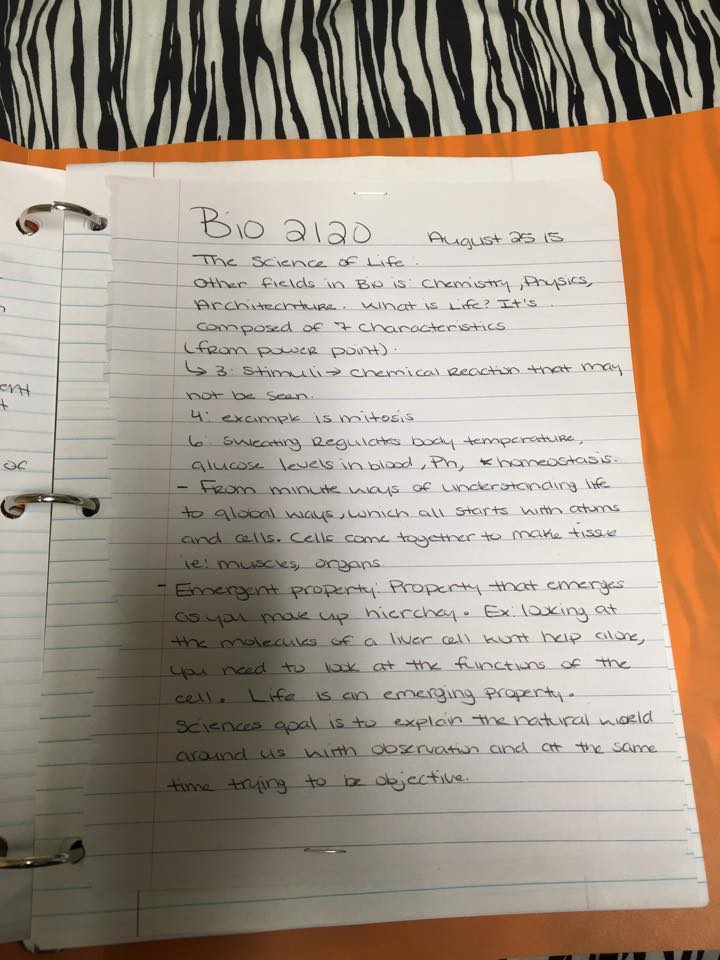 Bio 2120 August 25 15
The Science of Life.
Other fields in Bio is: Chemistry, Physics,
Architechture. What is Life? It's
composed of 7 characteristics
(from power point).
↳ 3: Stimuli → chemical Reaction that may
not be seen.
4: example is mitosis
6: Sweating Regulates body temperature,
glucose levels in blood, Ph, * homeostasis.
- From minute ways of understanding life
to global ways, which all starts with atoms
and cells. Cells come together to make tissue
ie: muscles, organs
- Emergent property: Property that emerges
as you move up hierchey. Ex: looking at
the molecules of a liver cell wont help alone,
you need to look at the functions of the
cell. Life is an emerging property.
Sciences goal is to explain the natural world
around us with observation and at the same
time trying to be objective.
ent
t
of